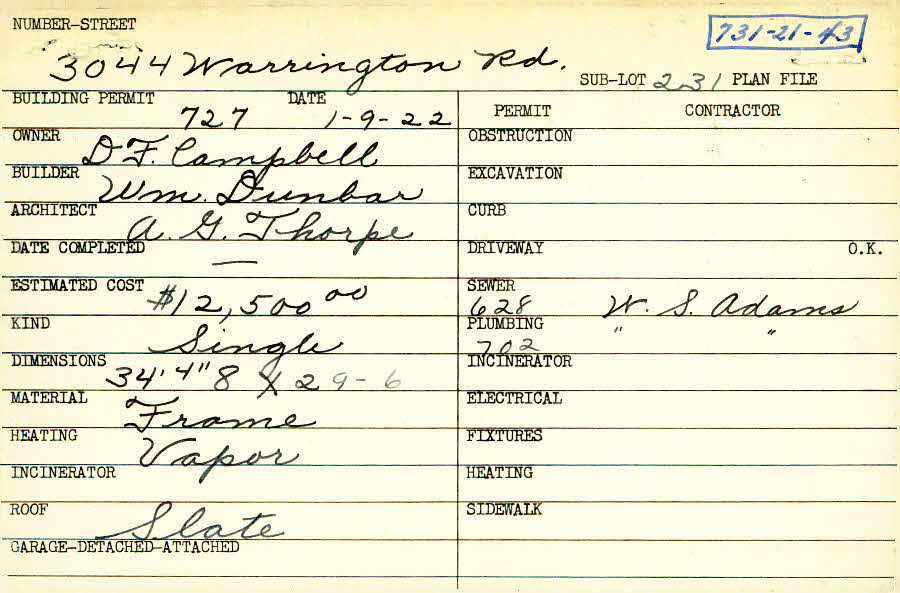 NUMBER-STREET
731-21-43
3044 Warrington Rd.
SUB-LOT 231 PLAN FILE
BUILDING PERMIT 727 DATE 1-9-22
PERMIT CONTRACTOR
OWNER D F. Campbell
OBSTRUCTION
BUILDER Wm. Dunbar
EXCAVATION
ARCHITECT A. G. Thorpe
CURB
DATE COMPLETED —
DRIVEWAY O.K.
ESTIMATED COST $12,500 00
SEWER 628 W. S. Adams
KIND Single
PLUMBING 702 " "
DIMENSIONS 34'4"8 X 29-6
INCINERATOR
MATERIAL Frame
ELECTRICAL
HEATING Vapor
FIXTURES
INCINERATOR
HEATING
ROOF Slate
SIDEWALK
GARAGE-DETACHED-ATTACHED